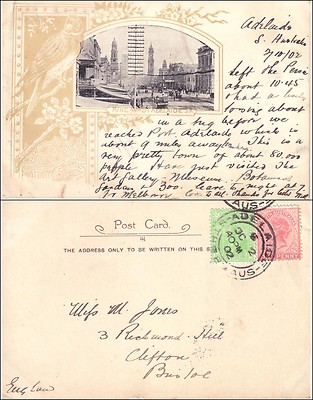 Adelaide
S. Australia
7/10/02
Left the
about
10.45
had a
tossing about
in a tug before we
reached Port Adelaide which is
about 9 miles away. This is a
very pretty town of about 50,000
people. Have just visited the
Art Gallery, Museum, Botanical
Gardens & Zoo. leave to night at 7
for Melbourne
Post Card.
THE ADDRESS ONLY TO BE WRITTEN ON THIS
ADELAIDE
AUS
Miss M. Jones
3 Richmond Hill
Clifton
Bristol
England